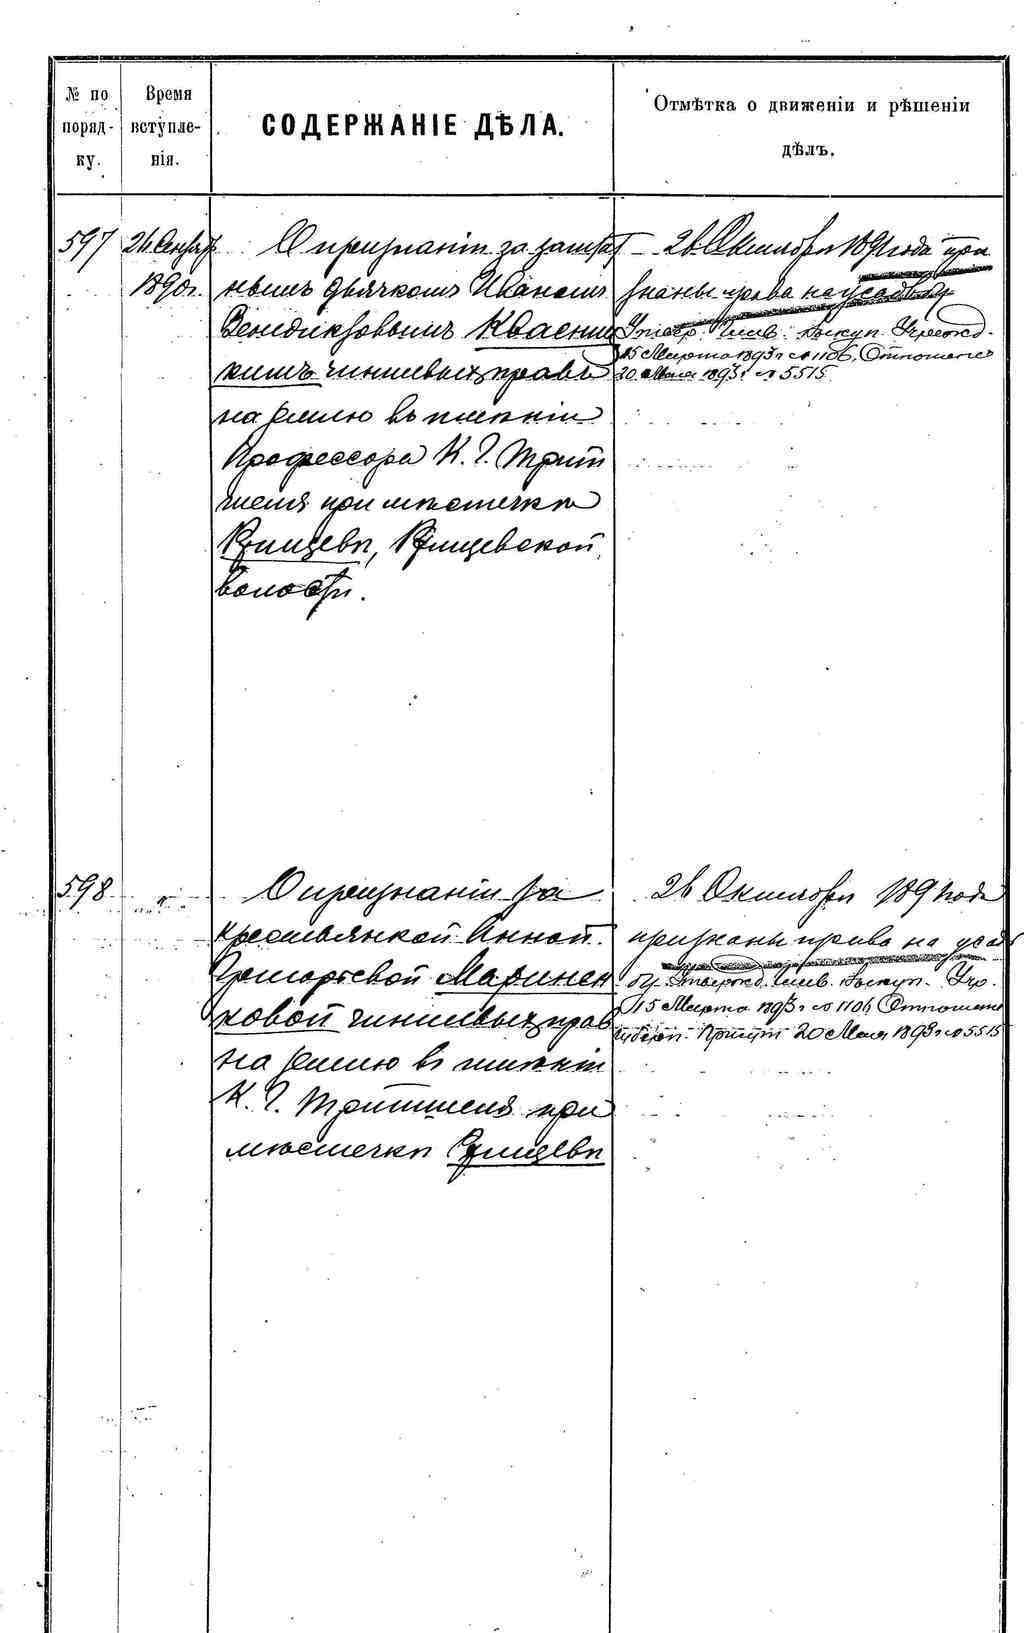 № по
поряд-
ку.
Время
вступле-
нія.
СОДЕРЖАНІЕ ДѢЛА.
Отмѣтка о движеніи и рѣшеніи
дѣлъ.
597
26 Сентяб
1890г.
О признаніи за заштат
нымъ дьячкомъ Иваномъ
Венедиктовымъ Квасниц
кимъ чиншевыхъ правъ
на землю въ имѣніи
Профессора К. Г. Тритт
шеля при мѣстечкѣ
Ржищевѣ, Ржищевской
волости.
26 Октября 1891 года при
знаны права на усадьбу
Утвер. Чинв. Выкуп. Учрежд.
15 Марта 1893 г № 1106. Отношеніе
20 Мая 1893 г № 5515.
598
О признаніи за
крестьянкой Анной
Григорьевой Маринен
ковой чиншевыхъ прав
на землю въ имѣніи
К. Г. Тритшеля при
мѣстечкѣ Ржищевѣ
26 Октября 1891 года
признаны права на усадь
бу. Утвержд. Выкуп. Учр.
15 Марта 1893 г № 1106 Отношеніе
Губерн. Присут 20 Мая 1893 г № 5515